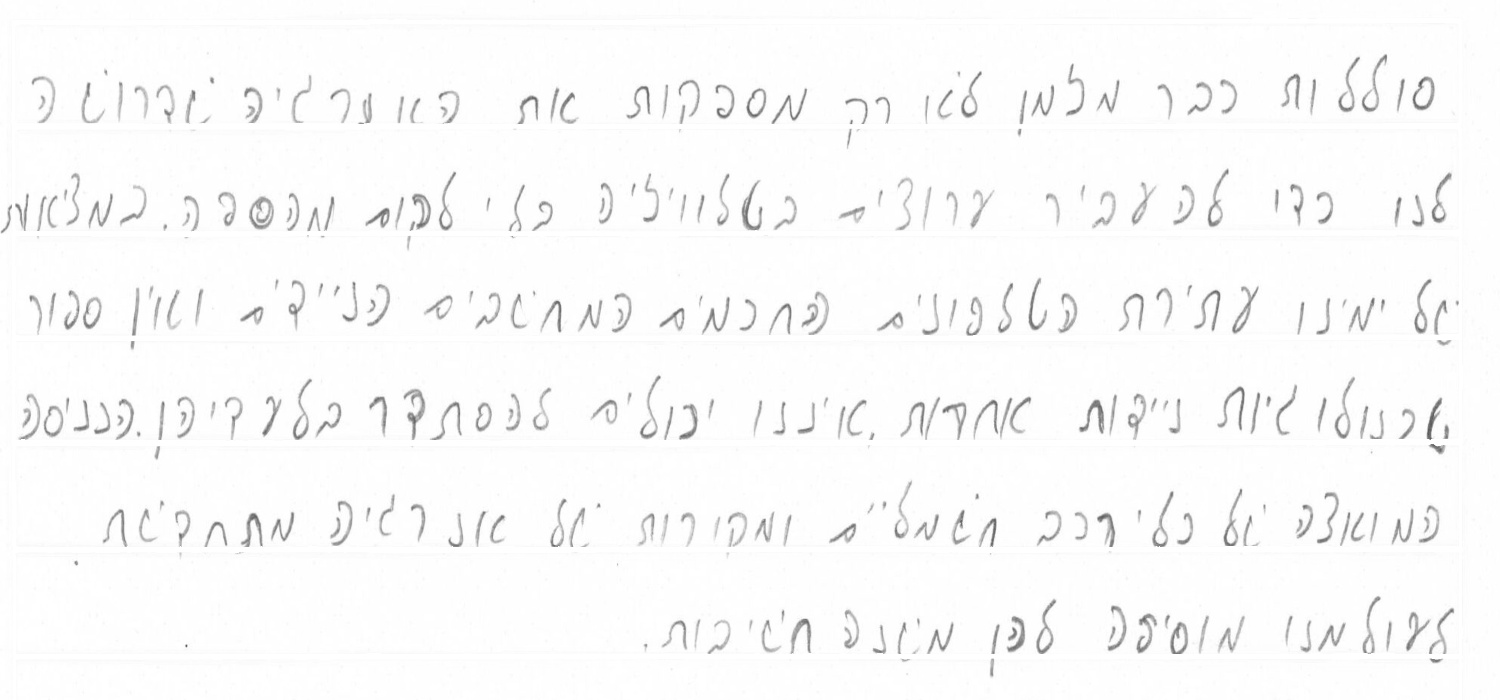 סוללות כבר מזמן לא רק מספקות את האנרגיה שדרושה
לנו כדי להעביר ערוצים בטלוויזיה בלי לקום מהספה. במציאות
של ימינו עתירת הטלפונים החכמים המחשבים הניידים ואין ספור
טכנולוגיות ניידות אחרות, איננו יכולים להסתדר בלעדיהן. הכניסה
המואצה של כלי רכב חשמליים ומקורות של אנרגיה מתחדשת
לעולמנו מוסיפה להן משנה חשיבות.